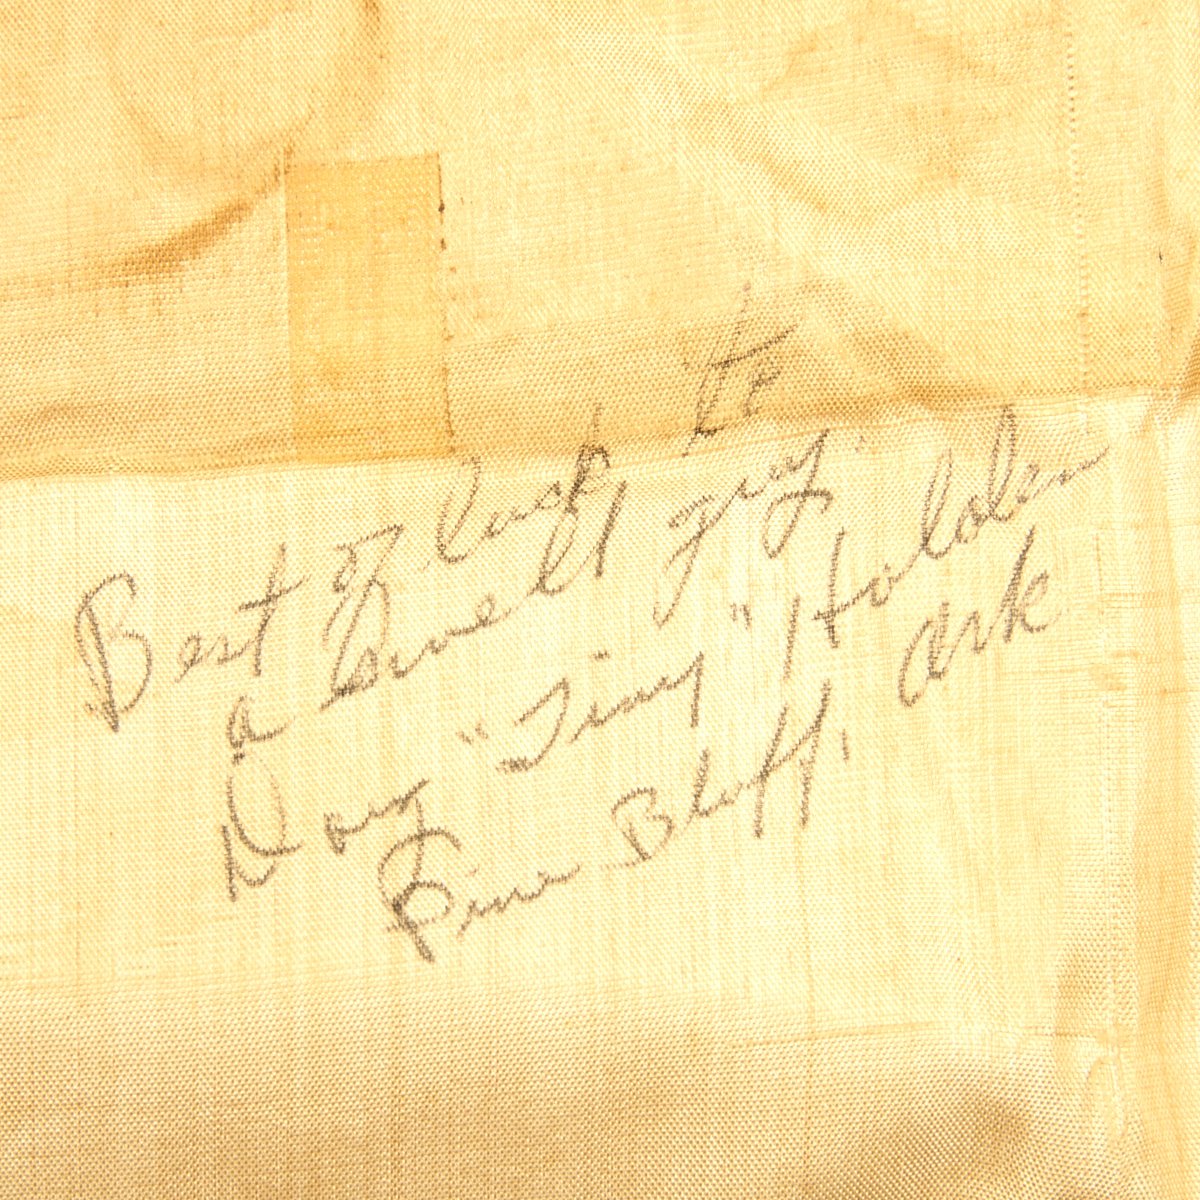 Best of luck to
a Swell guy.
Doug "Tiny"
Pine Bluff, Ark